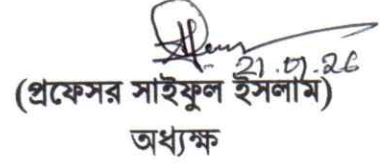 21.01.26
(প্রফেসর সাইফুল ইসলাম)
অধ্যক্ষ